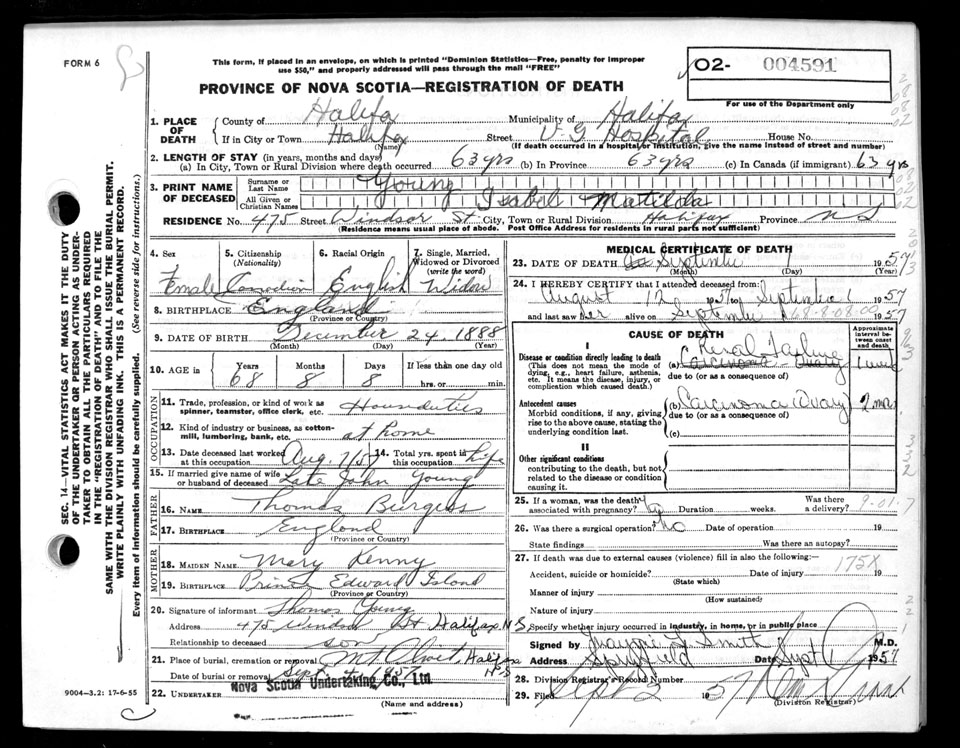 FORM 6
This form, if placed in an envelope, on which is printed "Dominion Statistics—Free, penalty for improper
use $50," and properly addressed will pass through the mail "FREE"
O2- 004591
For use of the Department only
PROVINCE OF NOVA SCOTIA—REGISTRATION OF DEATH
1. PLACE OF DEATH
County of Halifax Municipality of Halifax
If in City or Town Halifax Street V-G Hospital House No.
(Name) (If death occurred in a hospital or institution, give the name instead of street and number)
2. LENGTH OF STAY (in years, months and days)
(a) In City, Town or Rural Division where death occurred 63 yrs (b) In Province 63 yrs (c) In Canada (if immigrant) 63 yrs
3. PRINT NAME OF DECEASED
Surname or Last Name Young
All Given or Christian Names Isabel Matilda
RESIDENCE No. 475 Street Windsor St City, Town or Rural Division Halifax Province N S
(Residence means usual place of abode. Post Office Address for residents in rural parts not sufficient)
4. Sex 5. Citizenship (Nationality) 6. Racial Origin 7. Single, Married, Widowed or Divorced (write the word)
Female Canadian English Widow
8. BIRTHPLACE England
(Province or Country)
9. DATE OF BIRTH December 24, 1888
(Month) (Day) (Year)
10. AGE in Years Months Days If less than one day old
68 8 8 hrs. or min.
OCCUPATION
11. Trade, profession, or kind of work as spinner, teamster, office clerk, etc.
12. Kind of industry or business, as cotton-mill, lumbering, bank, etc. at home
13. Date deceased last worked at this occupation Aug. 7/57 14. Total yrs. spent in this occupation life
15. If married give name of wife or husband of deceased Late John Young
FATHER
16. NAME Thomas Burgess
17. BIRTHPLACE England
(Province or Country)
MOTHER
18. MAIDEN NAME Mary Kenny
19. BIRTHPLACE Prince Edward Island
(Province or Country)
20. Signature of informant Thomas Young
Address 475 Windsor St Halifax, N S.
Relationship to deceased son
21. Place of burial, cremation or removal Mt Olivet, Halifax N S
Date of burial or removal Sep 4 1957
22. UNDERTAKER Nova Scotia Undertaking Co., Ltd.
(Name and address)
9004—3.2: 17-6-55
SEC. 14—VITAL STATISTICS ACT MAKES IT THE DUTY
OF THE UNDERTAKER OR PERSON ACTING AS UNDER-
TAKER TO OBTAIN ALL THE PARTICULARS REQUIRED
IN THE "REGISTRATION OF DEATH" AND TO FILE THE
SAME WITH THE DIVISION REGISTRAR WHO SHALL ISSUE THE BURIAL PERMIT.
WRITE PLAINLY WITH UNFADING INK. THIS IS A PERMANENT RECORD.
Every item of information should be carefully supplied. (See reverse side for instructions.)
MEDICAL CERTIFICATE OF DEATH
23. DATE OF DEATH September 1 1957
(Month) (Day) (Year)
24. I HEREBY CERTIFY that I attended deceased from:
August 12 1957 to September 1 1957
and last saw her alive on September 1 1957
68-8-08-00
CAUSE OF DEATH
Approximate interval between onset and death
I
Disease or condition directly leading to death
(This does not mean the mode of dying, e.g., heart failure, asthenia, etc. It means the disease, injury, or complication which caused death.)
(a) Renal Failure 1 week
due to (or as a consequence of)
Antecedent causes
Morbid conditions, if any, giving rise to the above cause, stating the underlying condition last.
(b) Carcinoma Ovary 2 mos.
due to (or as a consequence of)
(c)
II
Other significant conditions
contributing to the death, but not related to the disease or condition causing it.
25. If a woman, was the death associated with pregnancy? No Duration weeks. Was there a delivery?
26. Was there a surgical operation? No Date of operation 19
State findings Was there an autopsy?
27. If death was due to external causes (violence) fill in also the following:— 175X
Accident, suicide or homicide? Date of injury 19
(State which)
Manner of injury
(How sustained)
Nature of injury
Specify whether injury occurred in industry, in home, or in public place
Signed by Smith M.D.
Address Spryfield Date Sept 1 1957
28. Division Registrar's Record Number
29. Filed Sept 3 1957
(Division Registrar)